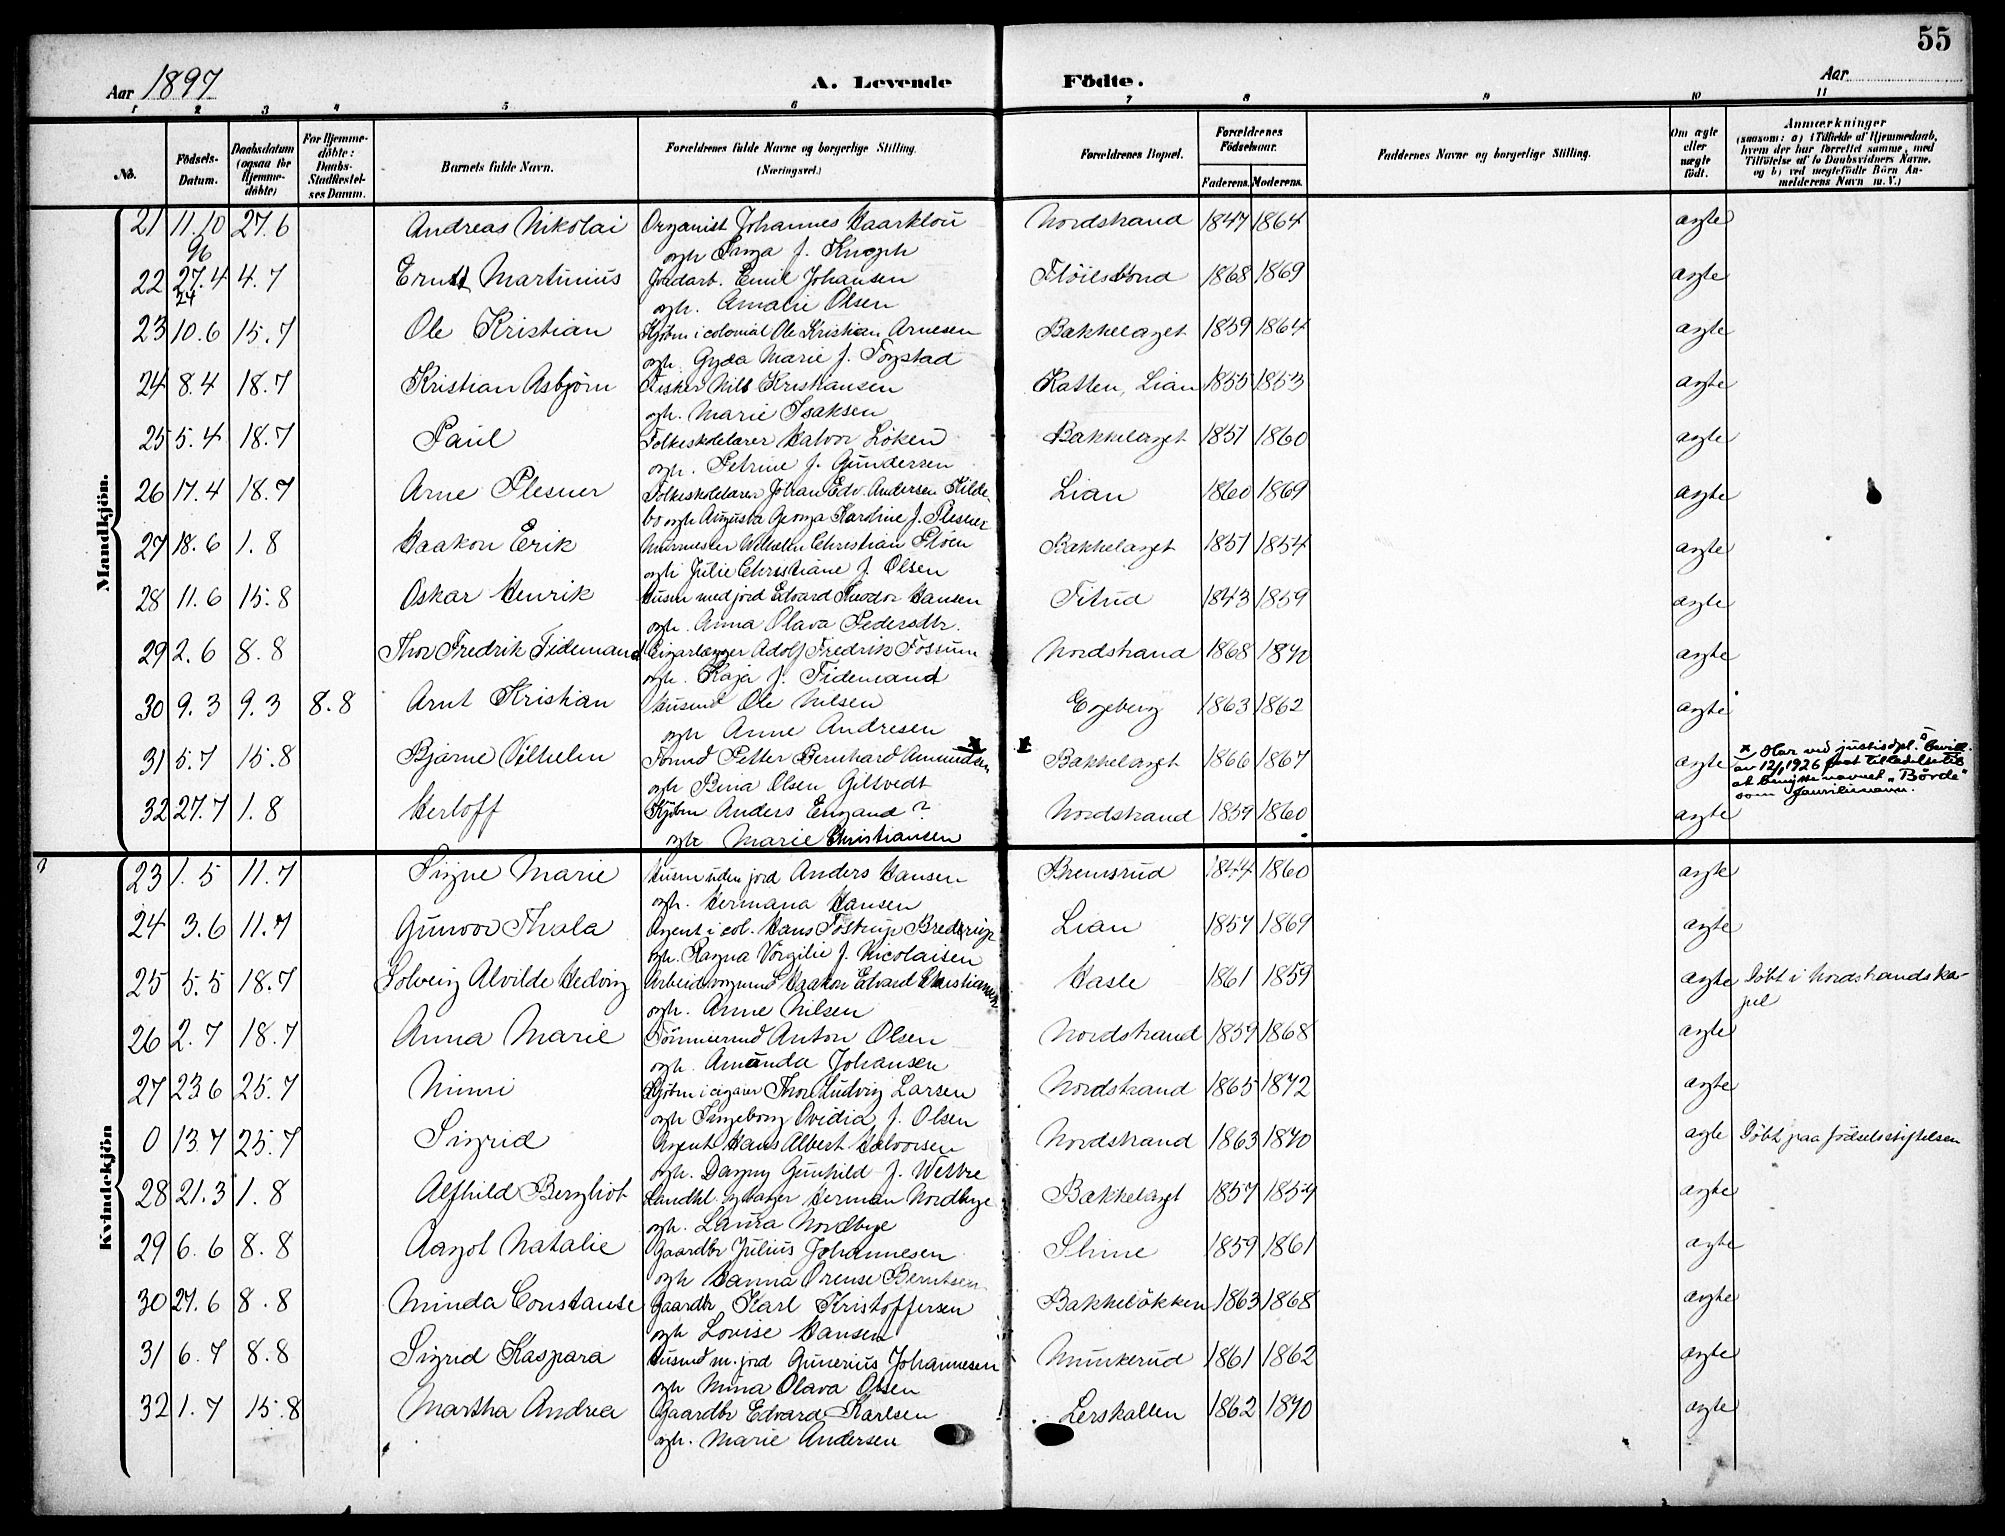 55
Aar 1897
A. Levende Fødte.
Aar
1 2 3 4 5 6 7 8 9 10 11
No.
Fødsels-Datum.
Daabsdatum (ogsaa for Hjemme-døbte)
For Hjemme-døbte: Daabs-Stadfæstel-ses Datum.
Barnets fulde Navn.
Forældrenes fulde Navne og borgerlige Stilling. (Næringsvei.)
Forældrenes Bopæl.
Forældrenes Fødselsaar.
Faderens. Moderens.
Faddernes Navne og borgerlige Stilling.
Om ægte eller uægte født.
Anmærkninger
(saasom: a) i Tilfælde af Hjemmedaab,
hvem der har forrettet samme, med
Tilføielse af to Daabsvidners Navne,
og b) ved uegtefødte Børn An-
melderens Navn m. V.)
Mandkjøn.
21 11.10 96 27.6 Andreas Nikolai Organist Johannes Haarklou Nordstrand 1847 1864 ægte
ogh Inga f. Knoph
22 27.4 4.7 Martinius Jordarb. Emil Johansen 1868 1869 ægte
ogh. Amalie Olsen
23 10.6 15.7 Ole Kristian Kjøbm i colonial Ole Kristian Arnesen Bakkelaget 1859 1864 ægte
ogh. Gyda Marie f. Fogstad
24 8.4 18.7 Kristian Asbjørn Fisker Nils Kristiansen Katten, Lian 1855 1853 ægte
ogh. Marie Isaksen
25 5.4 18.7 Paul Folkeskolelærer Halvor Løken Bakkelaget 1851 1860 ægte
ogh. Petrine f. Gundersen
26 17.4 18.7 Arne Plesner Folkeskolelærer Johan Edv. Andersen Kilde Lian 1860 1869 ægte
bo ogh Augusta Georga Karoline f. Plesner
27 18.6 1.8 Haakon Erik Murmester Wilhelm Christian Ploen Bakkelaget 1851 1854 ægte
ogh Julie Christiane f. Olsen
28 11.6 15.8 Oskar Henrik Husm med jord Edvard Theodor Hansen 1843 1859 ægte
ogh. Anna Olava Pedersdtr.
29 2.6 8.8 Thor Fredrik Tidemand Adolf Fredrik Fossum Nordstrand 1868 1870 ægte
ogh. Kaja f. Tidemand
30 9.3 9.3 8.8 Arnt Kristian Husmd Ole Nilsen Egeberg 1863 1862 ægte
ogh Anne Andresen
31 5.7 15.8 Bjarne Vilhelm Petter Bernhard Amundsen x x Bakkelaget 1866 1867 ægte x Har ved justisdpt.s bevill.
av 12/1 1926 faat tilladelse til
ogh Bina Olsen Giltvedt at benytte navnet "Börde"
som familienavn.
32 27.7 1.8 Herloff Kjøbm Anders Engand? Nordstrand 1857 1860 ægte
ogh Marie Christiansen
Kvindekjøn
23 1.5 11.7 Signe Marie Husm uden jord Anders Hansen Bremsrud 1844 1860 ægte
ogh. Hermana Hansen
24 3.6 11.7 Gunvor Thola Agent i col. Hans Fostrup Lian 1857 1869 ægte
ogh. Ragna Virgilie f. Nicolaisen
25 5.5 18.7 Solveig Alvilde Hedvig Haakon Edvard Christiansen Hasle 1861 1859 ægte Døbt i Nordstrands ka-
pel
ogh. Anne Nilsen
26 2.7 18.7 Anna Marie Tømmermd Anton Olsen Nordstrand 1857 1868 ægte
ogh. Amanda Johansen
27 23.6 25.7 Mimi Kjøbm i cigarer Thor Ludvig Larsen Nordstrand 1865 1872 ægte
ogh Ingeborg Ovidia f. Olsen
0 13.7 25.7 Sigrid Agent Hans Albert Halvorsen Nordstrand 1863 1870 ægte Døbt paa fødselsstiftelsen
ogh. Dagny Gunhild f. Westre
28 21.3 1.8 Alfhild Bergliot Landhl. Herman Nordbye Bakkelaget 1857 ægte
ogh. Laura Nordbye
29 6.6 8.8 Aagot Natalie Gaardbr Julius Johannesen Slime 1859 1861 ægte
ogh Hanna Berntsen
30 27.6 8.8 Minda Constanse Gaardbr Karl Kristoffersen Bakkeløkken 1863 1868 ægte
ogh Lovise Hansen
31 6.7 8.8 Sigrid Kaspara Husmd m. jord Gunerius Johannesen Munkerud 1861 1862 ægte
ogh Mina Olava Olsen
32 1.7 15.8 Martha Andrea Gaardbr Edvard Karlsen Lerskallen 1862 1870 ægte
ogh. Marie Andersen